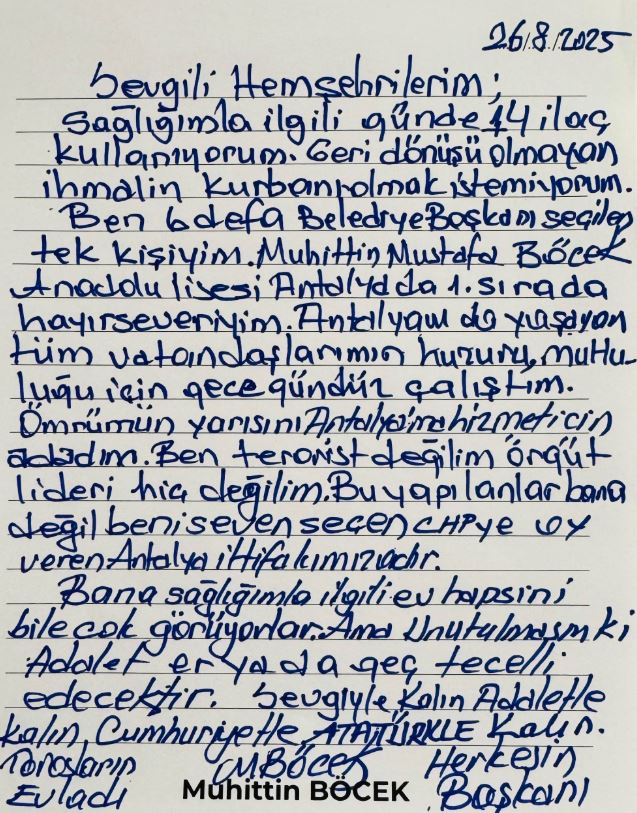 26.8.2025
Sevgili Hemşehrilerim;
Sağlığımla ilgili günde 14 ilaç
kullanıyorum. Geri dönüşü olmayan
ihmalin kurbanı olmak istemiyorum.
Ben 6 defa Belediye Başkanı seçilen
tek kişiyim. Muhittin Mustafa Böcek
Anadolu lisesi Antalyada 1. sırada
hayırseveriyim. Antalyam da yaşayan
tüm vatandaşlarımın huzuru, mutlu-
luğu için gece gündüz çalıştım.
Ömrümün yarısını Antalya'ma hizmet için
adadım. Ben terorist değilim örgüt
lideri hiç değilim. Bu yapılanlar bana
değil beni seven seçen CHPye oy
veren Antalya ittifakımızadır.
Bana sağlığımla ilgili ev hapsini
bile çok görüyorlar. Ama Unutulmasın ki
Adalet er ya da geç tecelli
edecektir. Sevgiyle Kalın Adaletle
kalın, Cumhuriyetle, ATATÜRKLE Kalın.
Torosların MBöcek Herkesin
Evladı Muhittin BÖCEK Başkanı